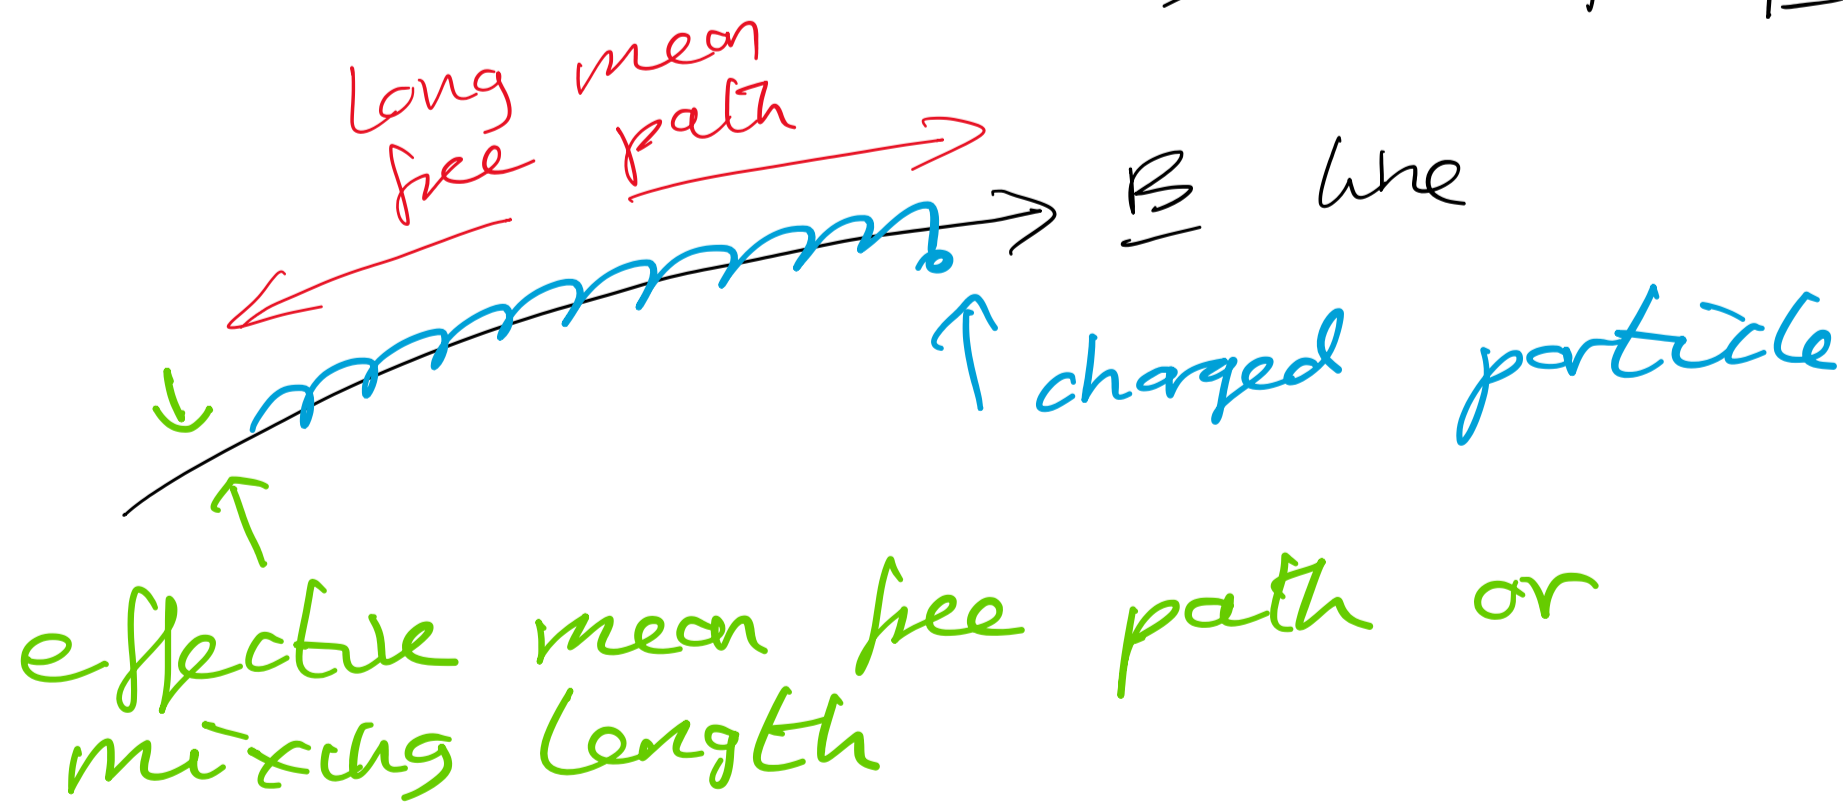 long mean
free path
B line
charged particle
effective mean free path or
mixing length